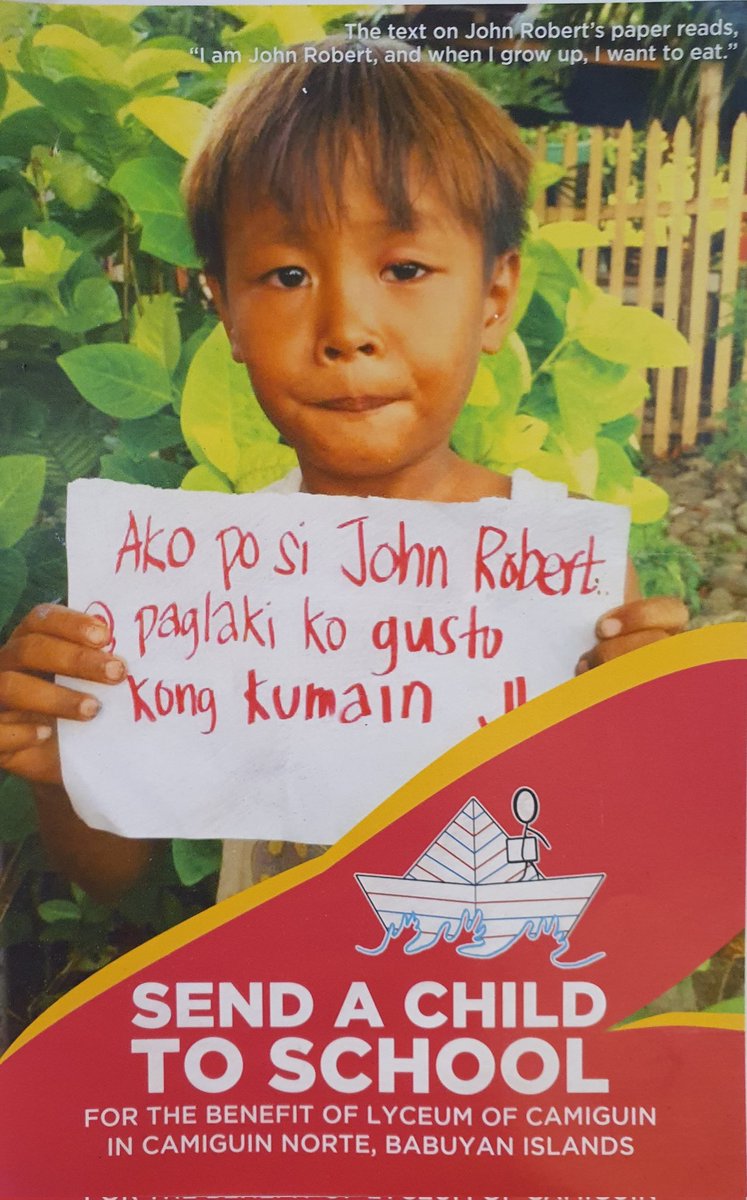 The text on John Robert's paper reads,
“I am John Robert, and when I grow up, I want to eat.”
Ako po si John Robert..
@ paglaki ko gusto
kong kumain
SEND A CHILD
TO SCHOOL
FOR THE BENEFIT OF LYCEUM OF CAMIGUIN
IN CAMIGUIN NORTE, BABUYAN ISLANDS